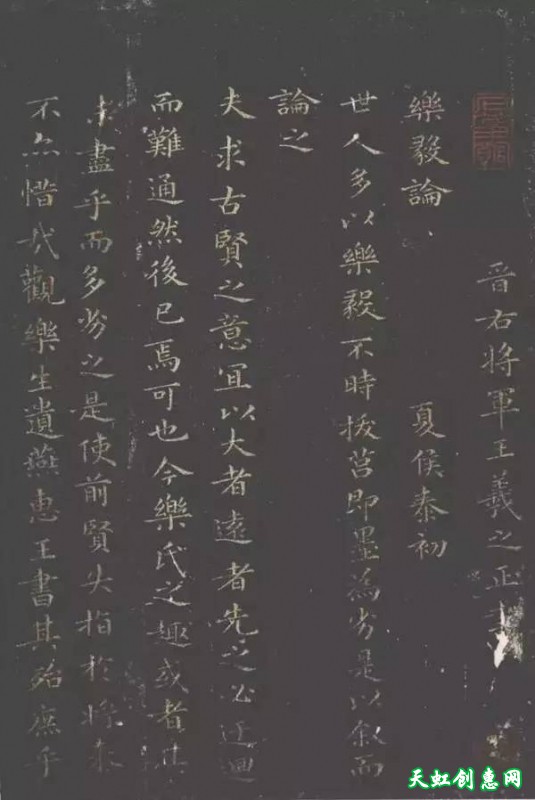 晉右將軍王羲之正書
樂毅論 夏侯泰初
世人多以樂毅不時拔莒即墨為劣是以叙而
論之
夫求古賢之意宜以大者遠者先之必迂迴
而難通然後已焉可也今樂氏之趣或者其
未盡乎而多劣之是使前賢失指於將來
不亦惜哉觀樂生遺燕惠王書其殆庶乎
天虹创惠网